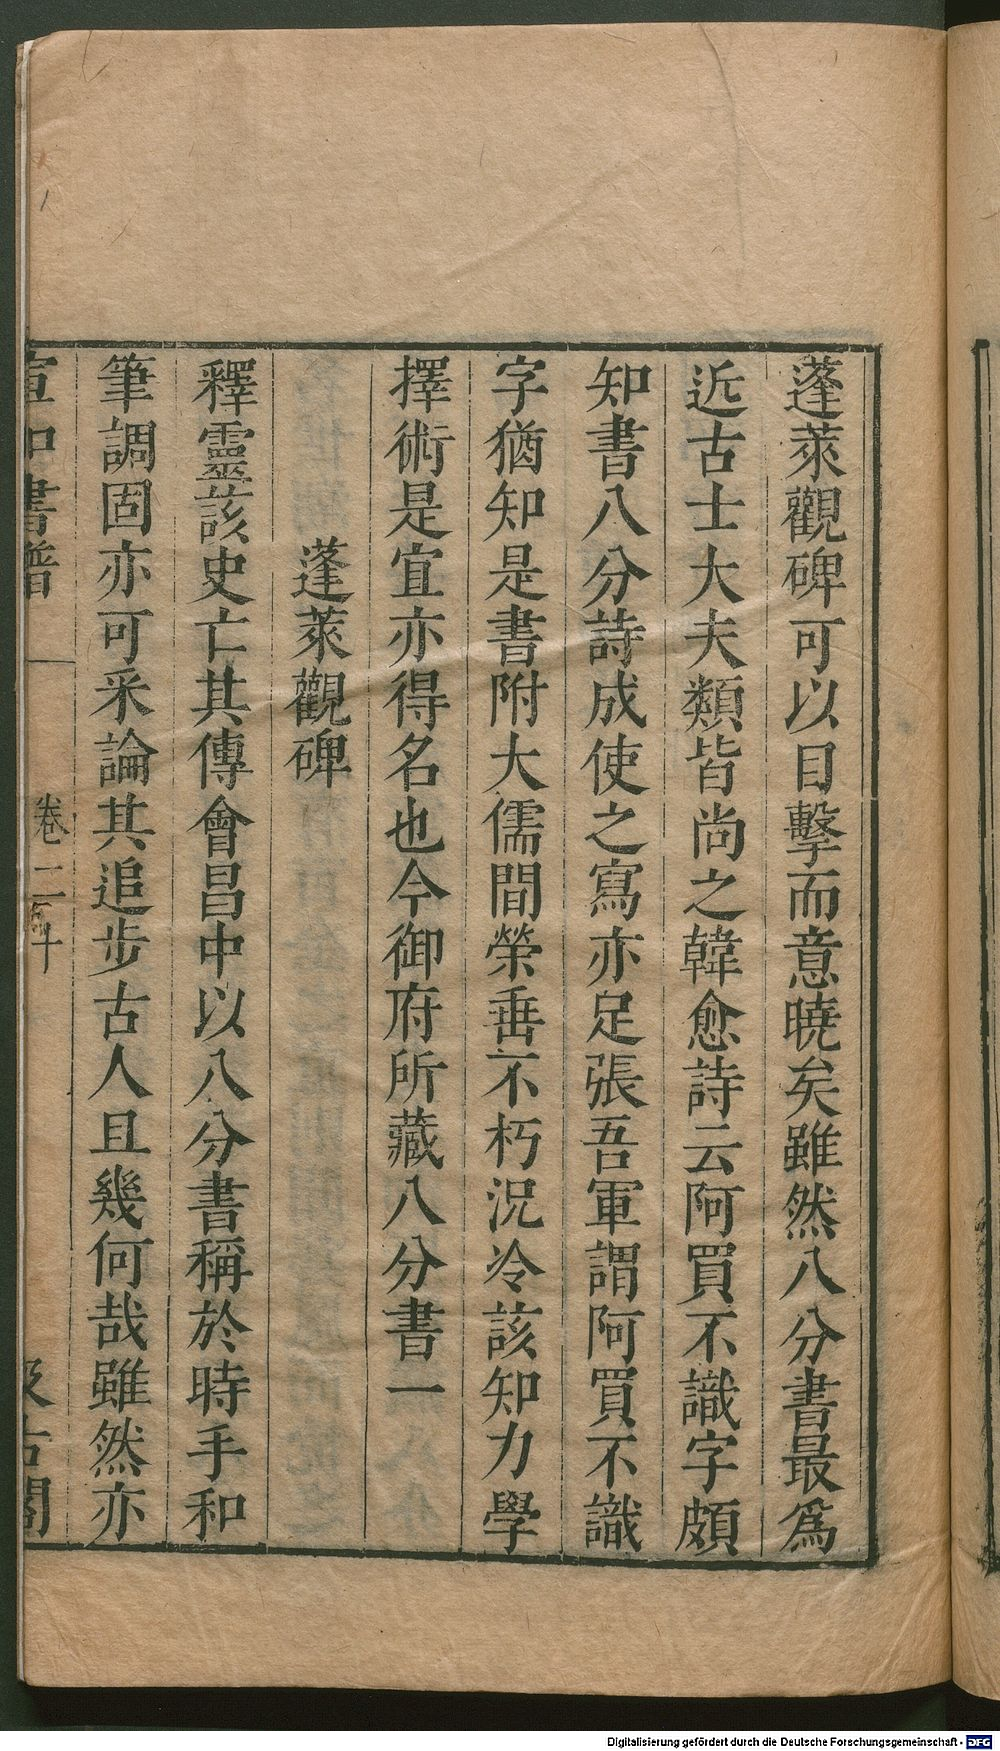 蓬萊觀碑可以目擊而意曉矣雖然八分書最爲
近古士大夫類皆尚之韓愈詩云阿買不識字頗
知書八分詩成使之寫亦足張吾軍謂阿買不識
字猶知是書附大儒間榮垂不朽況冷該知力學
擇術是宜亦得名也今御府所藏八分書一
蓬萊觀碑
釋靈該史亡其傳會昌中以八分書稱於時手和
筆調固亦可采論其追步古人且幾何哉雖然亦
宣和書譜 卷二十 汲古閣
Digitalisierung gefördert durch die Deutsche Forschungsgemeinschaft - DFG